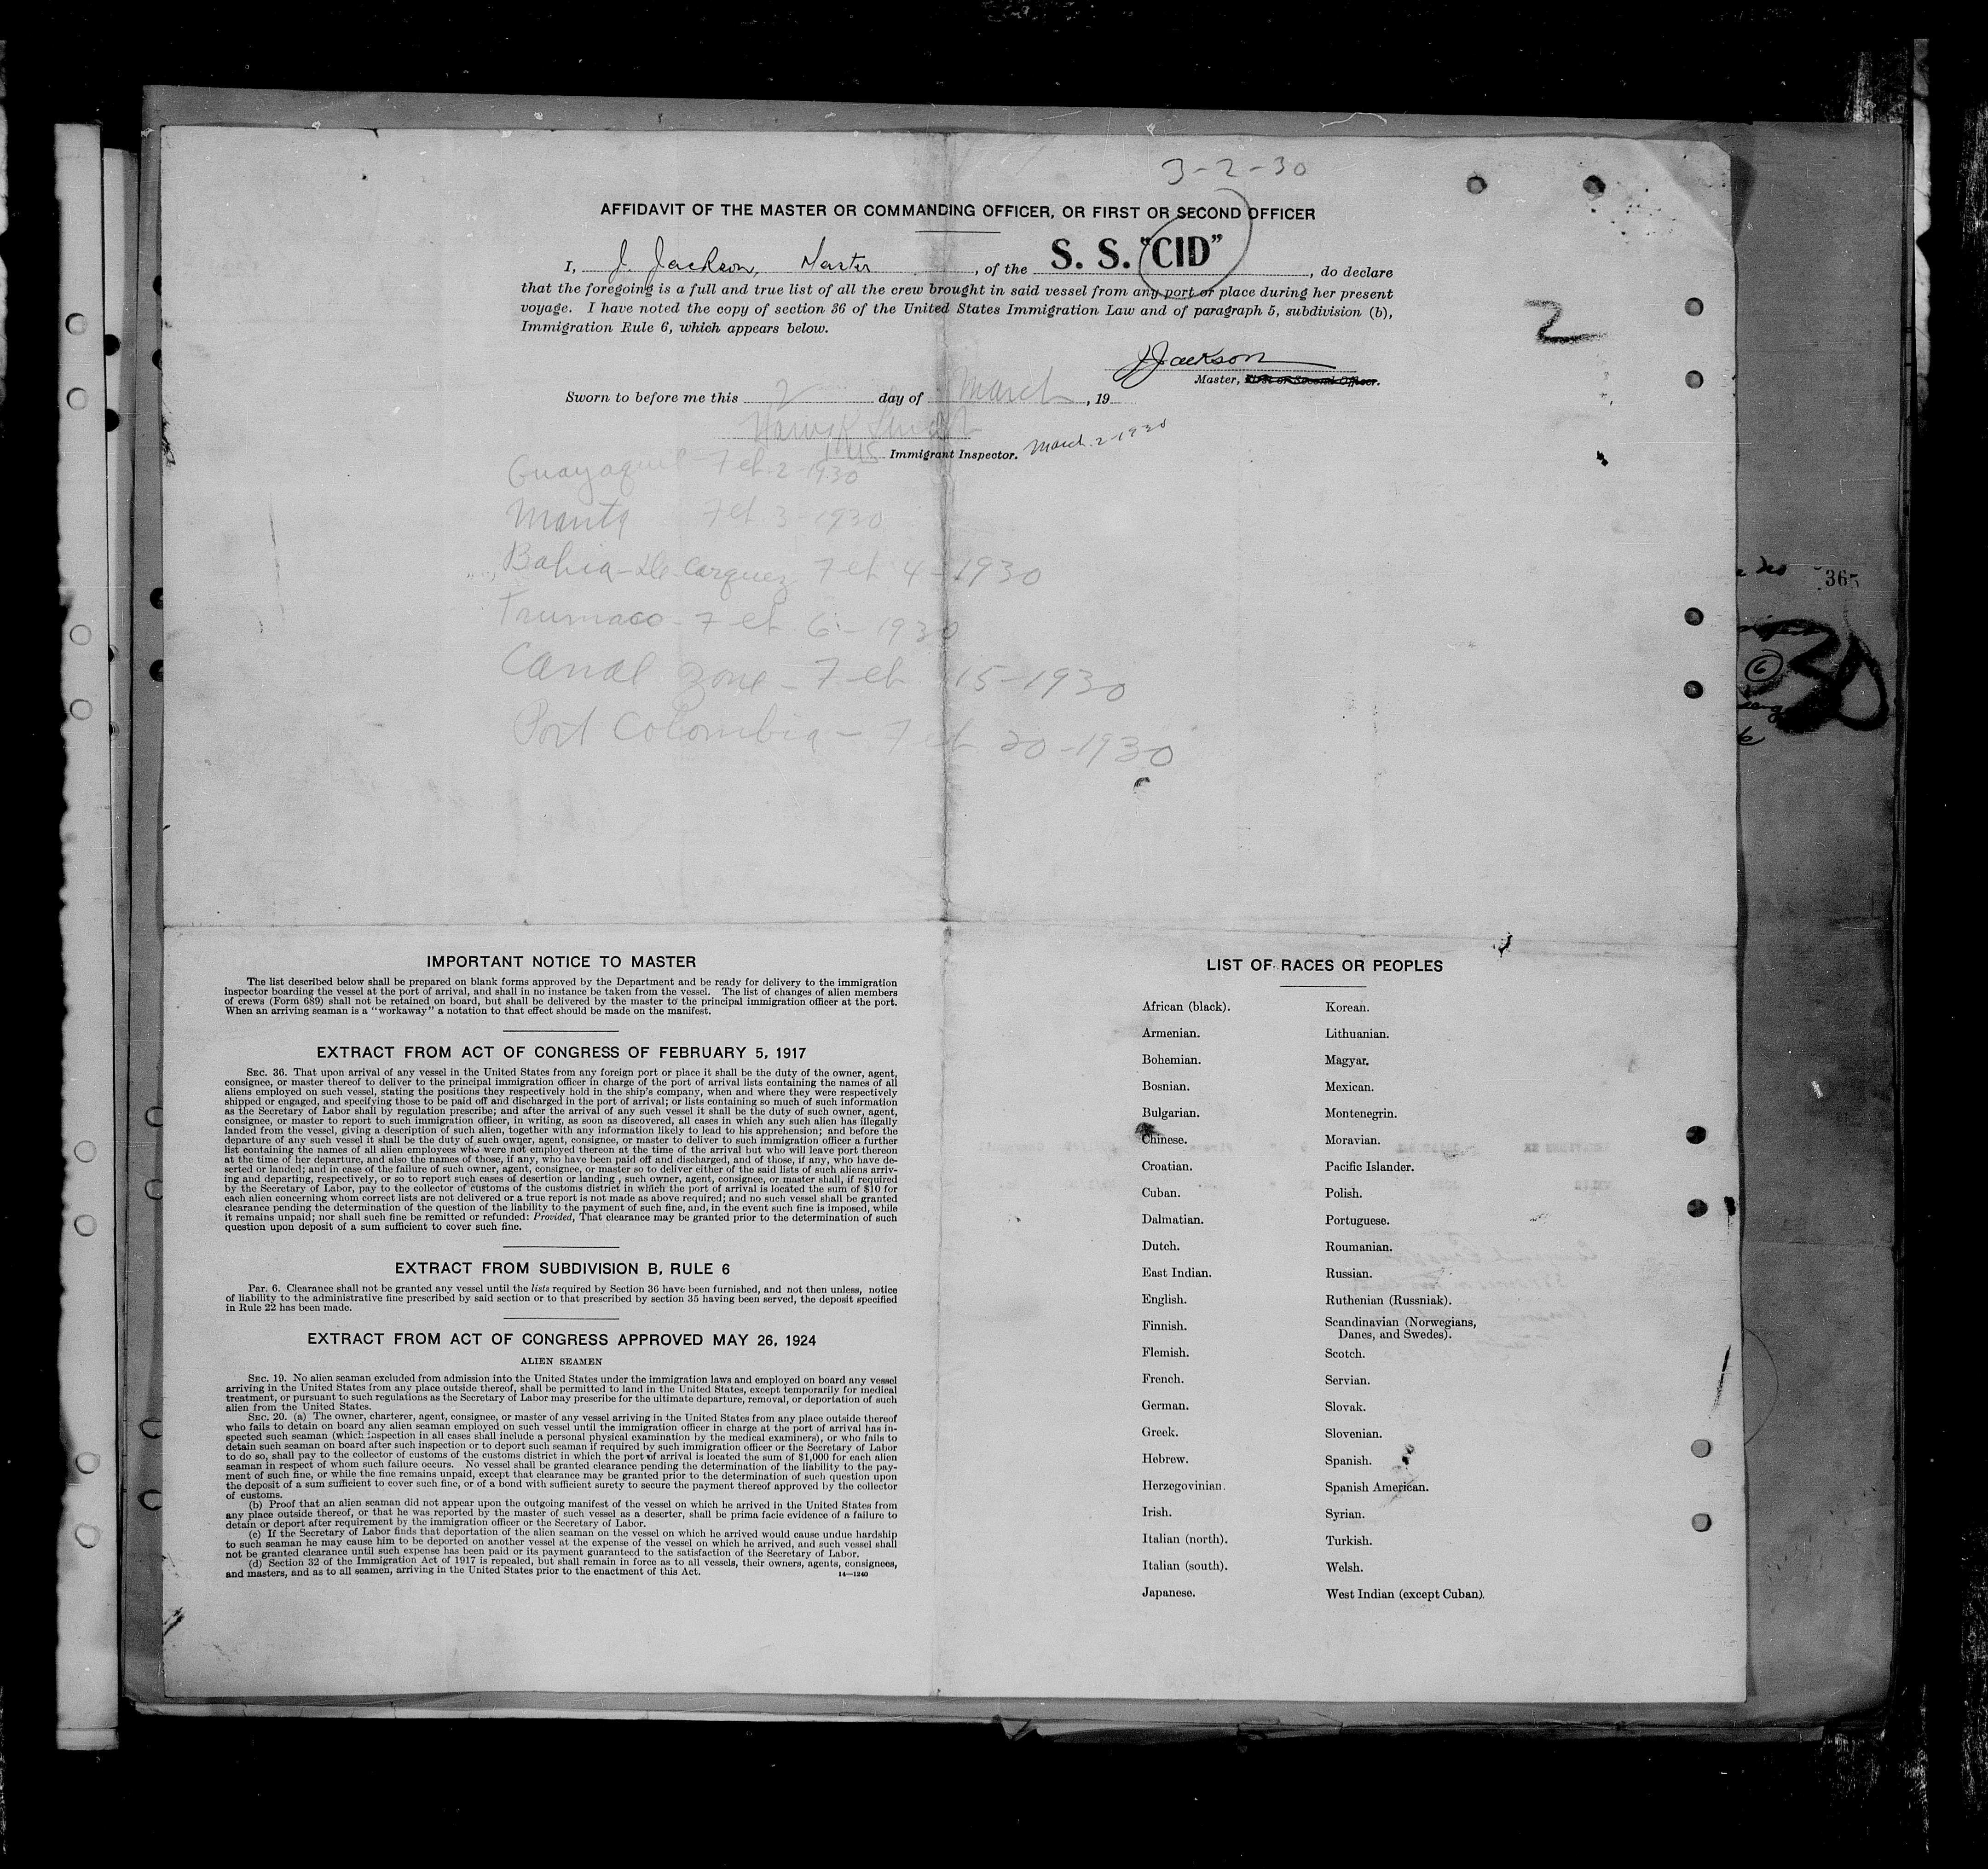 3-2-30
AFFIDAVIT OF THE MASTER OR COMMANDING OFFICER, OR FIRST OR SECOND OFFICER
I, J. Jackson, Master, of the S. S. "CID", do declare
that the foregoing is a full and true list of all the crew brought in said vessel from any port or place during her present
voyage. I have noted the copy of section 36 of the United States Immigration Law and of paragraph 5, subdivision (b),
Immigration Rule 6, which appears below.
2
JJackson
Master, First or Second Officer.
Sworn to before me this 2 day of March, 19
Immigrant Inspector. March 2-1930
Guayaquil Feb. 2-1930
Manta Feb 3-1930
Bahia-De-Carquez Feb 4-1930
Trumaco- Feb 6-1930
Canal Zone- Feb 15-1930
Port Colombia- Feb 20-1930
365
6
IMPORTANT NOTICE TO MASTER
The list described below shall be prepared on blank forms approved by the Department and be ready for delivery to the immigration
inspector boarding the vessel at the port of arrival, and shall in no instance be taken from the vessel. The list of changes of alien members
of crews (Form 689) shall not be retained on board, but shall be delivered by the master to the principal immigration officer at the port.
When an arriving seaman is a "workaway" a notation to that effect should be made on the manifest.
EXTRACT FROM ACT OF CONGRESS OF FEBRUARY 5, 1917
SEC. 36. That upon arrival of any vessel in the United States from any foreign port or place it shall be the duty of the owner, agent,
consignee, or master thereof to deliver to the principal immigration officer in charge of the port of arrival lists containing the names of all
aliens employed on such vessel, stating the positions they respectively hold in the ship's company, when and where they were respectively
shipped or engaged, and specifying those to be paid off and discharged in the port of arrival; or lists containing so much of such information
as the Secretary of Labor shall by regulation prescribe; and after the arrival of any such vessel it shall be the duty of such owner, agent,
consignee, or master to report to such immigration officer, in writing, as soon as discovered, all cases in which any such alien has illegally
landed from the vessel, giving a description of such alien, together with any information likely to lead to his apprehension; and before the
departure of any such vessel it shall be the duty of such owner, agent, consignee, or master to deliver to such immigration officer a further
list containing the names of all alien employees who were not employed thereon at the time of the arrival but who will leave port thereon
at the time of her departure, and also the names of those, if any, who have been paid off and discharged, and of those, if any, who have de-
serted or landed; and in case of the failure of such owner, agent, consignee, or master so to deliver either of the said lists of such aliens arriv-
ing and departing, respectively, or so to report such cases of desertion or landing , such owner, agent, consignee, or master shall, if required
by the Secretary of Labor, pay to the collector of customs of the customs district in which the port of arrival is located the sum of $10 for
each alien concerning whom correct lists are not delivered or a true report is not made as above required; and no such vessel shall be granted
clearance pending the determination of the question of the liability to the payment of such fine, and, in the event such fine is imposed, while
it remains unpaid; nor shall such fine be remitted or refunded: Provided, That clearance may be granted prior to the determination of such
question upon deposit of a sum sufficient to cover such fine.
EXTRACT FROM SUBDIVISION B, RULE 6
PAR. 6. Clearance shall not be granted any vessel until the lists required by Section 36 have been furnished, and not then unless, notice
of liability to the administrative fine prescribed by said section or to that prescribed by section 35 having been served, the deposit specified
in Rule 22 has been made.
EXTRACT FROM ACT OF CONGRESS APPROVED MAY 26, 1924
ALIEN SEAMEN
SEC. 19. No alien seaman excluded from admission into the United States under the immigration laws and employed on board any vessel
arriving in the United States from any place outside thereof, shall be permitted to land in the United States, except temporarily for medical
treatment, or pursuant to such regulations as the Secretary of Labor may prescribe for the ultimate departure, removal, or deportation of such
alien from the United States.
SEC. 20. (a) The owner, charterer, agent, consignee, or master of any vessel arriving in the United States from any place outside thereof
who fails to detain on board any alien seaman employed on such vessel until the immigration officer in charge at the port of arrival has in-
spected such seaman (which inspection in all cases shall include a personal physical examination by the medical examiners), or who fails to
detain such seaman on board after such inspection or to deport such seaman if required by such immigration officer or the Secretary of Labor
to do so, shall pay to the collector of customs of the customs district in which the port of arrival is located the sum of $1,000 for each alien
seaman in respect of whom such failure occurs. No vessel shall be granted clearance pending the determination of the liability to the pay-
ment of such fine, or while the fine remains unpaid, except that clearance may be granted prior to the determination of such question upon
the deposit of a sum sufficient to cover such fine, or of a bond with sufficient surety to secure the payment thereof approved by the collector
of customs.
(b) Proof that an alien seaman did not appear upon the outgoing manifest of the vessel on which he arrived in the United States from
any place outside thereof, or that he was reported by the master of such vessel as a deserter, shall be prima facie evidence of a failure to
detain or deport after requirement by the immigration officer or the Secretary of Labor.
(c) If the Secretary of Labor finds that deportation of the alien seaman on the vessel on which he arrived would cause undue hardship
to such seaman he may cause him to be deported on another vessel at the expense of the vessel on which he arrived, and such vessel shall
not be granted clearance until such expense has been paid or its payment guaranteed to the satisfaction of the Secretary of Labor.
(d) Section 32 of the Immigration Act of 1917 is repealed, but shall remain in force as to all vessels, their owners, agents, consignees,
and masters, and as to all seamen, arriving in the United States prior to the enactment of this Act. 14—1240
LIST OF RACES OR PEOPLES
African (black).
Armenian.
Bohemian.
Bosnian.
Bulgarian.
Chinese.
Croatian.
Cuban.
Dalmatian.
Dutch.
East Indian.
English.
Finnish.
Flemish.
French.
German.
Greek.
Hebrew.
Herzegovinian.
Irish.
Italian (north).
Italian (south).
Japanese.
Korean.
Lithuanian.
Magyar.
Mexican.
Montenegrin.
Moravian.
Pacific Islander.
Polish.
Portuguese.
Roumanian.
Russian.
Ruthenian (Russniak).
Scandinavian (Norwegians,
Danes, and Swedes).
Scotch.
Servian.
Slovak.
Slovenian.
Spanish.
Spanish American.
Syrian.
Turkish.
Welsh.
West Indian (except Cuban).